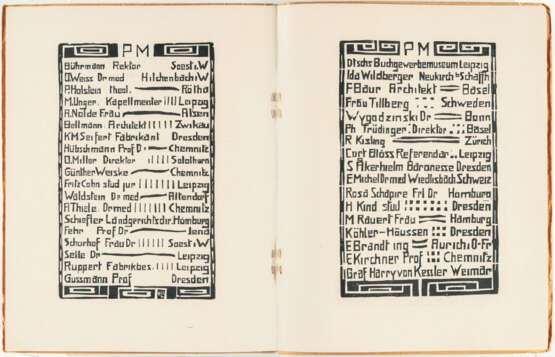 PM
Bührmann Rektor Soest i.W
O.Weiss Dr med Hilchenbach i.W
P.Holstein theol. Rötha
M.Unger. Kapellmeister Leipzig
A.Nolde Frau Alsen
Bellmann Architekt Zwikau
KM Seifert Fabrikant Dresden
Hübschmann Prof D Chemnitz
O.Miller Direktor Solothurn
Günther Werske Chemnitz
Fritz Cohn stud jur Leipzig
Waldstein Dr med Altendorf
A.Thiele Dr med Chemnitz
Schiefler Landgerichtsdir. Hamburg
Fehr Prof Dr Jena
Schurhof Frau Dr Soest i.W
Seile Dr Leipzig
Ruppert Fabrikbes. Leipzig
Gussmann Prof Dresden
PM
Dtschs Buchgewerbemuseum Leipzig
Ida Wildberger Neukirch b Schaffh
F Baur Architekt Basel
Frau Tillberg Schweden
Wygodzinski Dr Bonn
Ph Trüdinger. Direktor Basel
R Kisling Zürich
Curt Blöss Referendar Leipzig
S Åkerhielm Baronesse Dresden
E Michel Dr med Wiedlisbach Schweiz
Rosa Schapire Frl Dr Hamburg
H Kind stud Dresden
M Rauert Frau Hamburg
Köhler-Haussen Dresden
E Brandt ing Aurich O-Fr
E Kirchner Prof Chemnitz
Graf Harry von Kessler Weimar